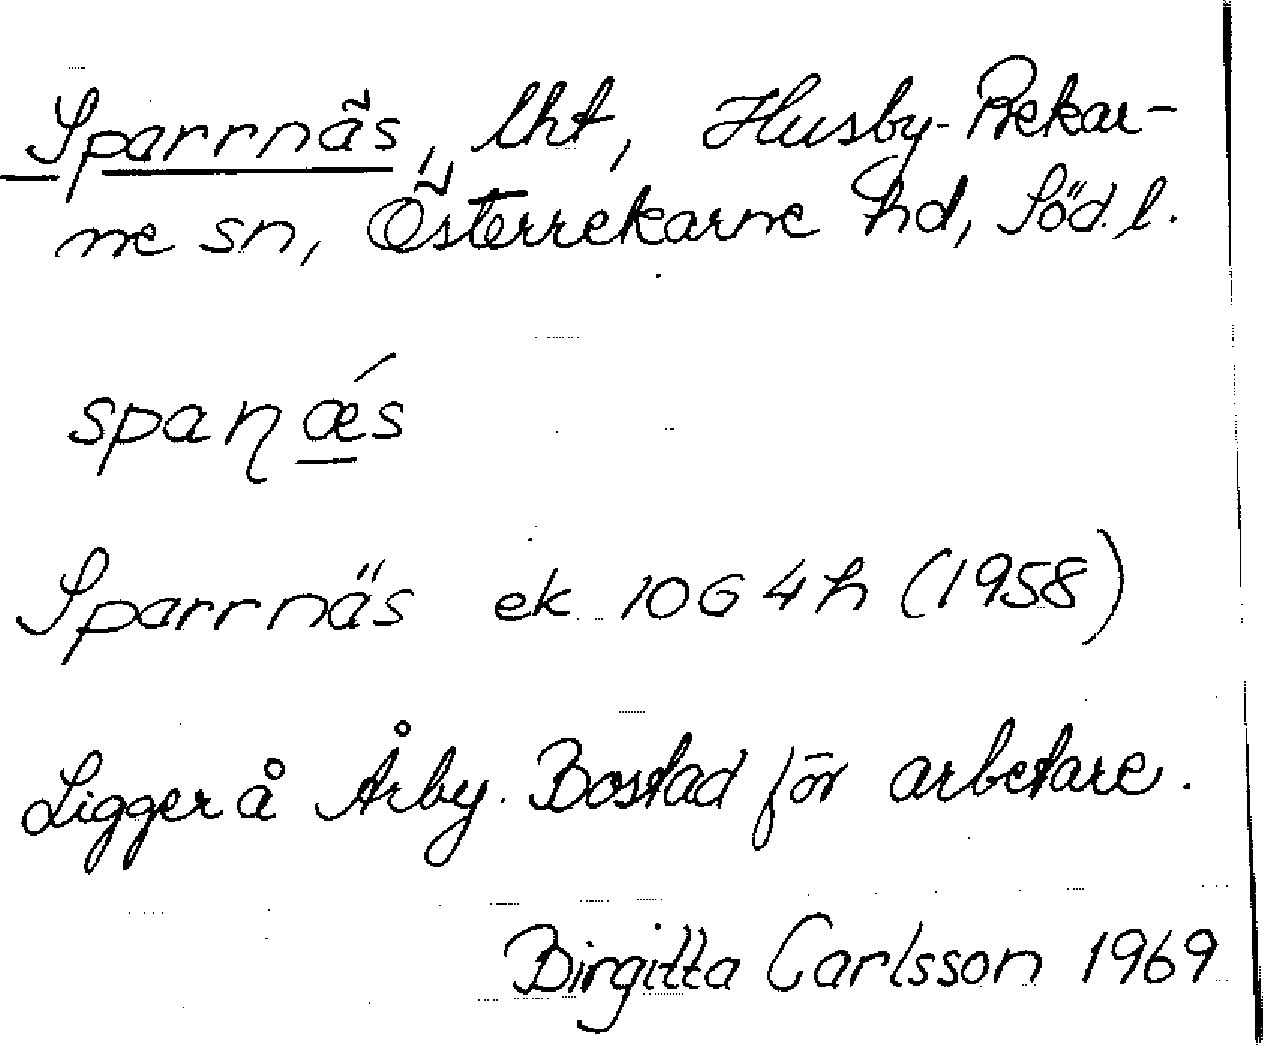 Sparrnäs, lht, Husby-Rekar-
ne sn, Österrekarne hd, Söd. l.
spaɳǽs
Sparrnäs ek 10G 4h (1958)
Ligger å Årby. Bostad för arbetare.
Birgitta Carlsson 1969